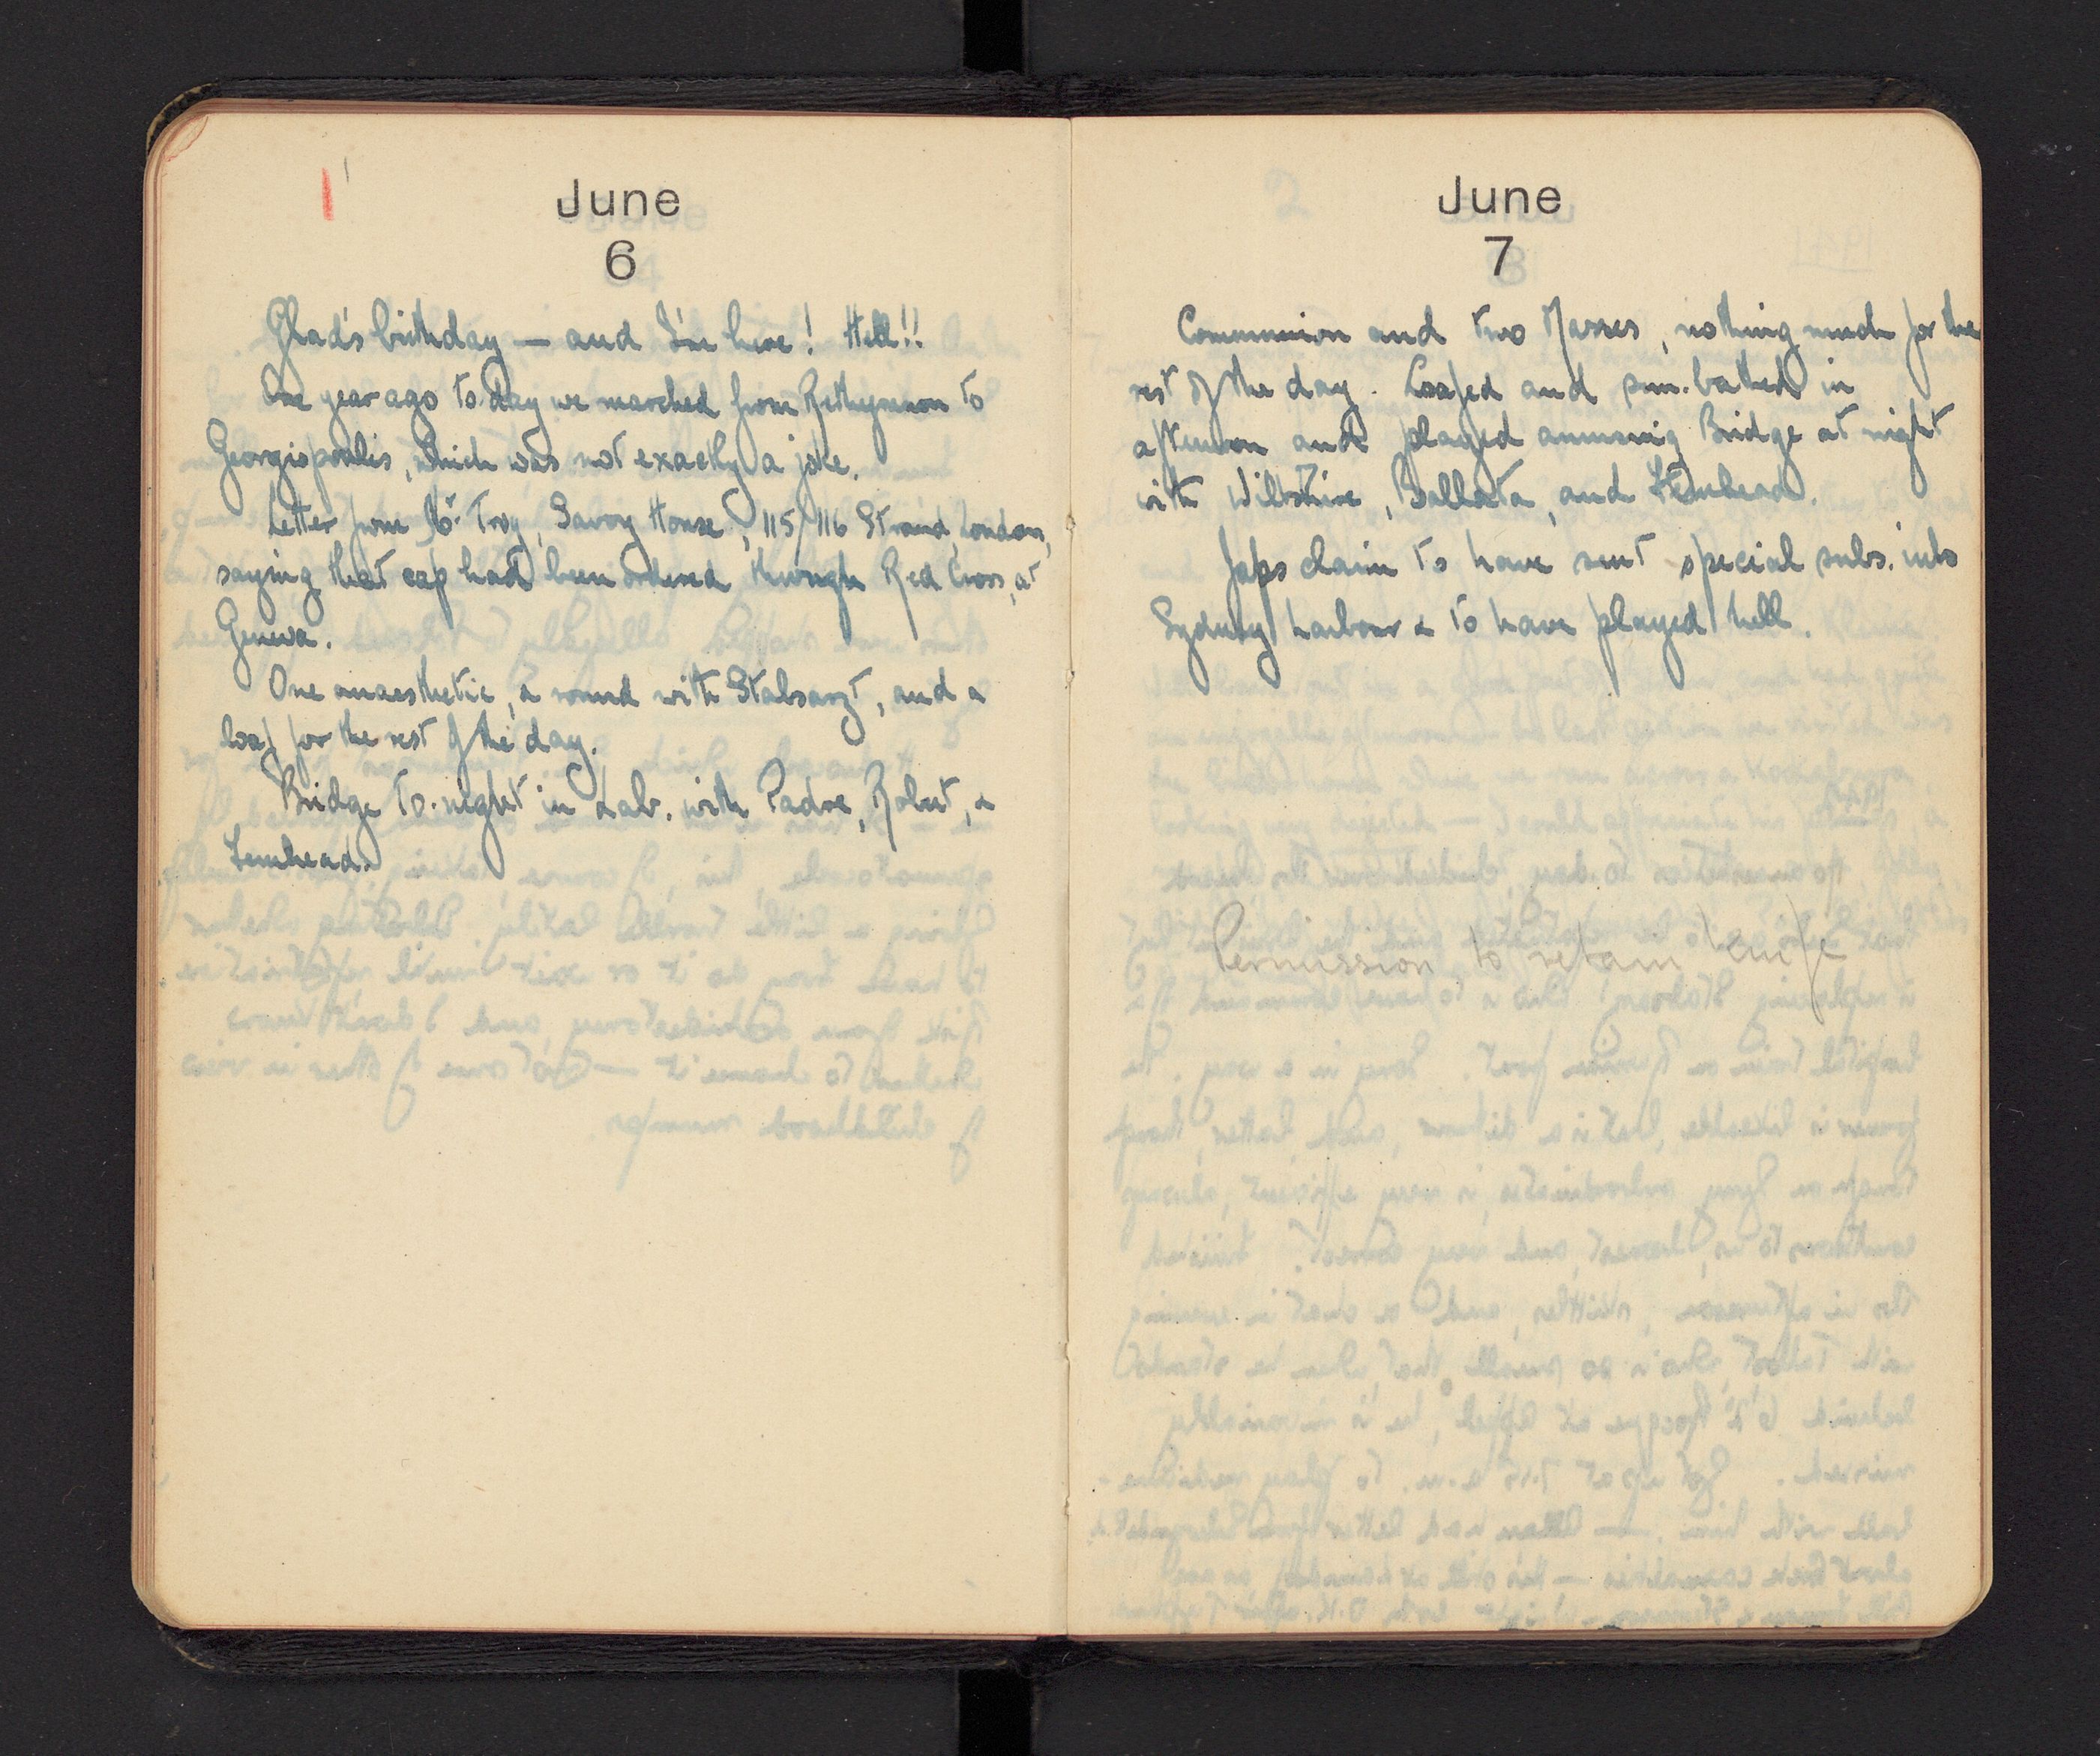 June
6
Glad's birthday — and I'm here! Hell!!
One year ago to-day we marched from Rethymnon to
Georgiopoulis, which was not exactly a joke.
Letter from Mr. Troy, Savoy House, 115/116 Strand, London,
saying that cap had been ordered through Red Cross, at
Geneva.
One anaesthetic, a round with Stabsarzt, and a
loaf for the rest of the day.
Bridge to-night in Lab. with Padre, Robert, &
Lennhead.
June
7
Communion and two Masses, nothing much for the
rest of the day. Loafed and sun-bathed in
afternoon and played amusing Bridge at night
with Wiltshire, Ballata, and
Japs claim to have sent special subs. into
Sydney harbour & to have played hell.
Permission to retain knife